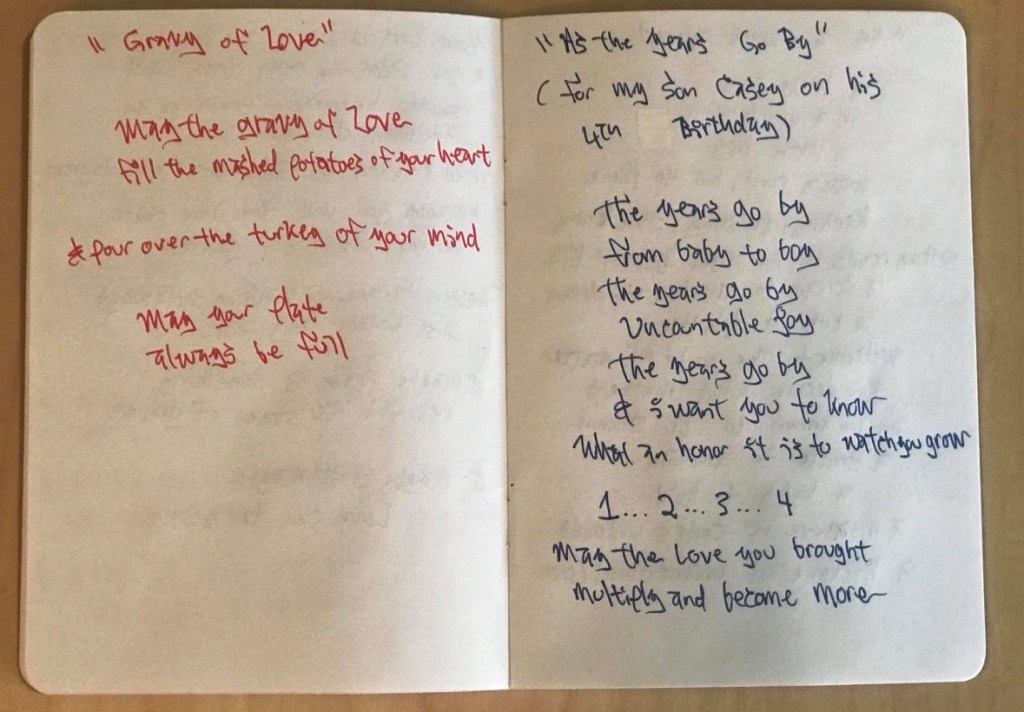 "Gravy of Love"
May the gravy of Love
fill the mashed potatoes of your heart
& pour over the turkey of your mind
May your plate
always be full
"As the years Go By"
(for my son Casey on his
4th Birthday)
the years go by
from baby to boy
the years go by
Uncountable Joy
the years go by
& i want you to know
What an honor it is to watch you grow
1... 2... 3... 4
May the Love you brought
multiply and become more